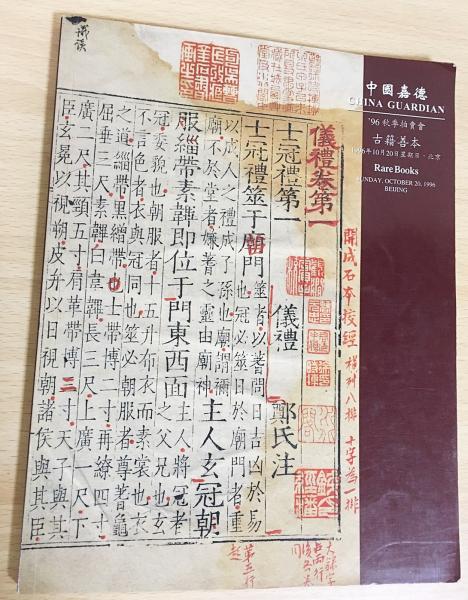 中國嘉德
CHINA GUARDIAN
'96秋季拍賣會
古籍善本
1996年10月20日星期日·北京
Rare Books
SUNDAY, OCTOBER 20, 1996
BEIJING
開成石本校經 橫列八排 十字為一排
儀禮卷第一
士冠禮第一 儀禮 鄭氏注
士冠禮筮于廟門
筮者以蓍問日吉凶於易
也冠必筮日於廟門者重
以成人之禮成子孫也廟謂禰
廟不於堂者嫌蓍之靈由廟神
主人玄冠朝
服緇帶素韠即位于門東西面
主人將冠者
之父兄也玄
冠委貌也朝服者十五升布衣而素裳也衣
不言色者衣與冠同也筮必朝服者尊蓍龜
之道緇帶黑繒帶也士帶博二寸再繚四寸
屈垂三尺素韠白韋韠長三尺上廣一尺下
廣二尺其頸五寸肩革帶博三寸天子與其
臣玄冕以視朔皮弁以日視朝諸侯與其臣